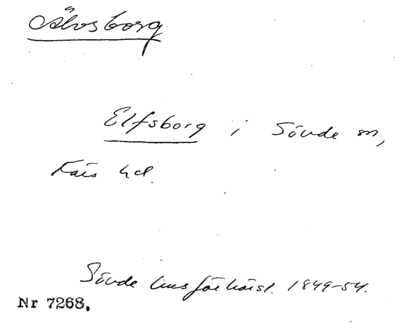 Älvsborg
Elfsborg i Sövde sn,
Färs hd.
Sövde husförhörsl. 1849-54.
Nr 7268.